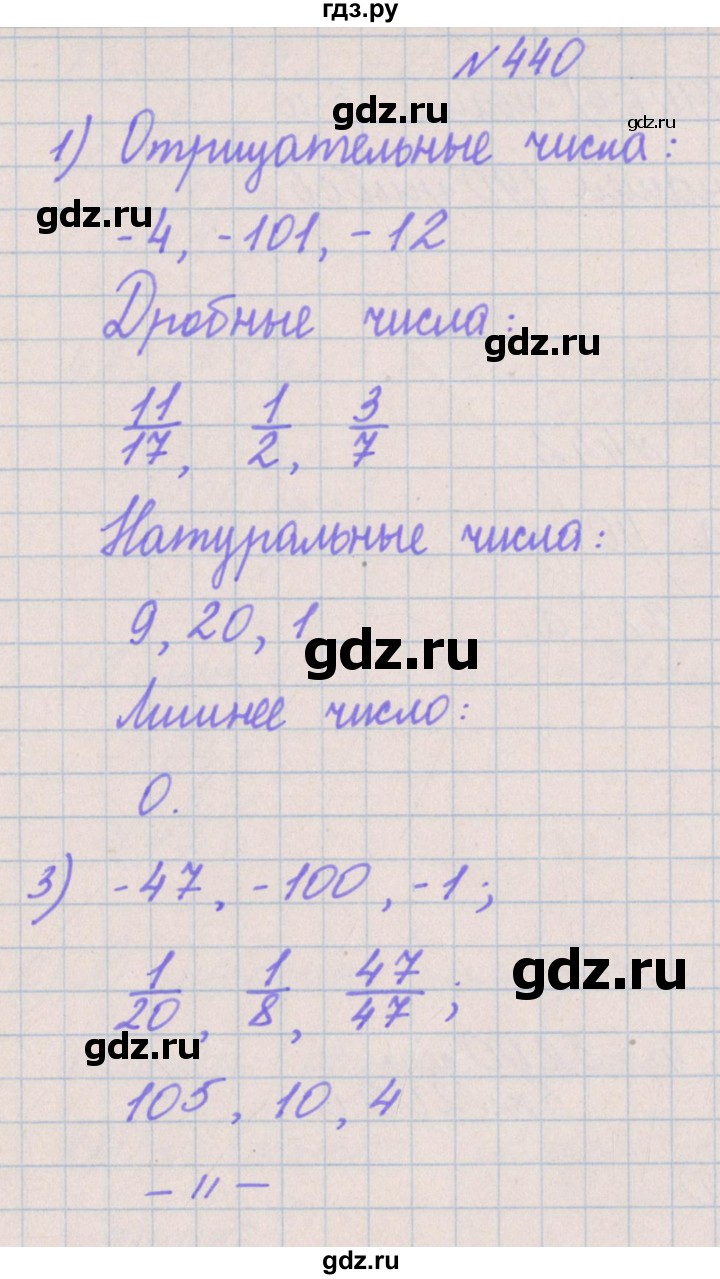 гдз.ру
№440
gdz.ru
gdz.ru
1) Отрицательные числа:
gdz.ru
-4, -101, -12
Дробные числа:
gdz.ru
11/17, 1/2, 3/7
Натуральные числа:
9, 20, 1
gdz.ru
Лишнее число:
0.
3) -47, -100, -1;
gdz.ru
1/20, 1/8, 47/47;
gdz.ru
105, 10, 4
- 11 -
gdz.ru